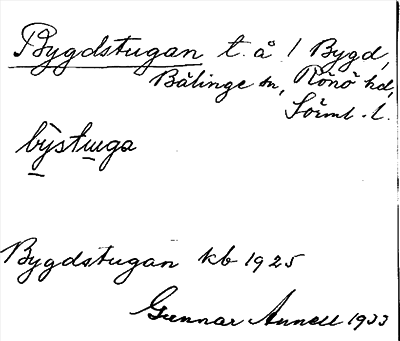 Bygdstugan t. å / Bygd,
Bälinge sn, Rönö hd,
Sörml. l.
bỳstuga
Bygdstugan kb 1925
Gunnar Annell 1933